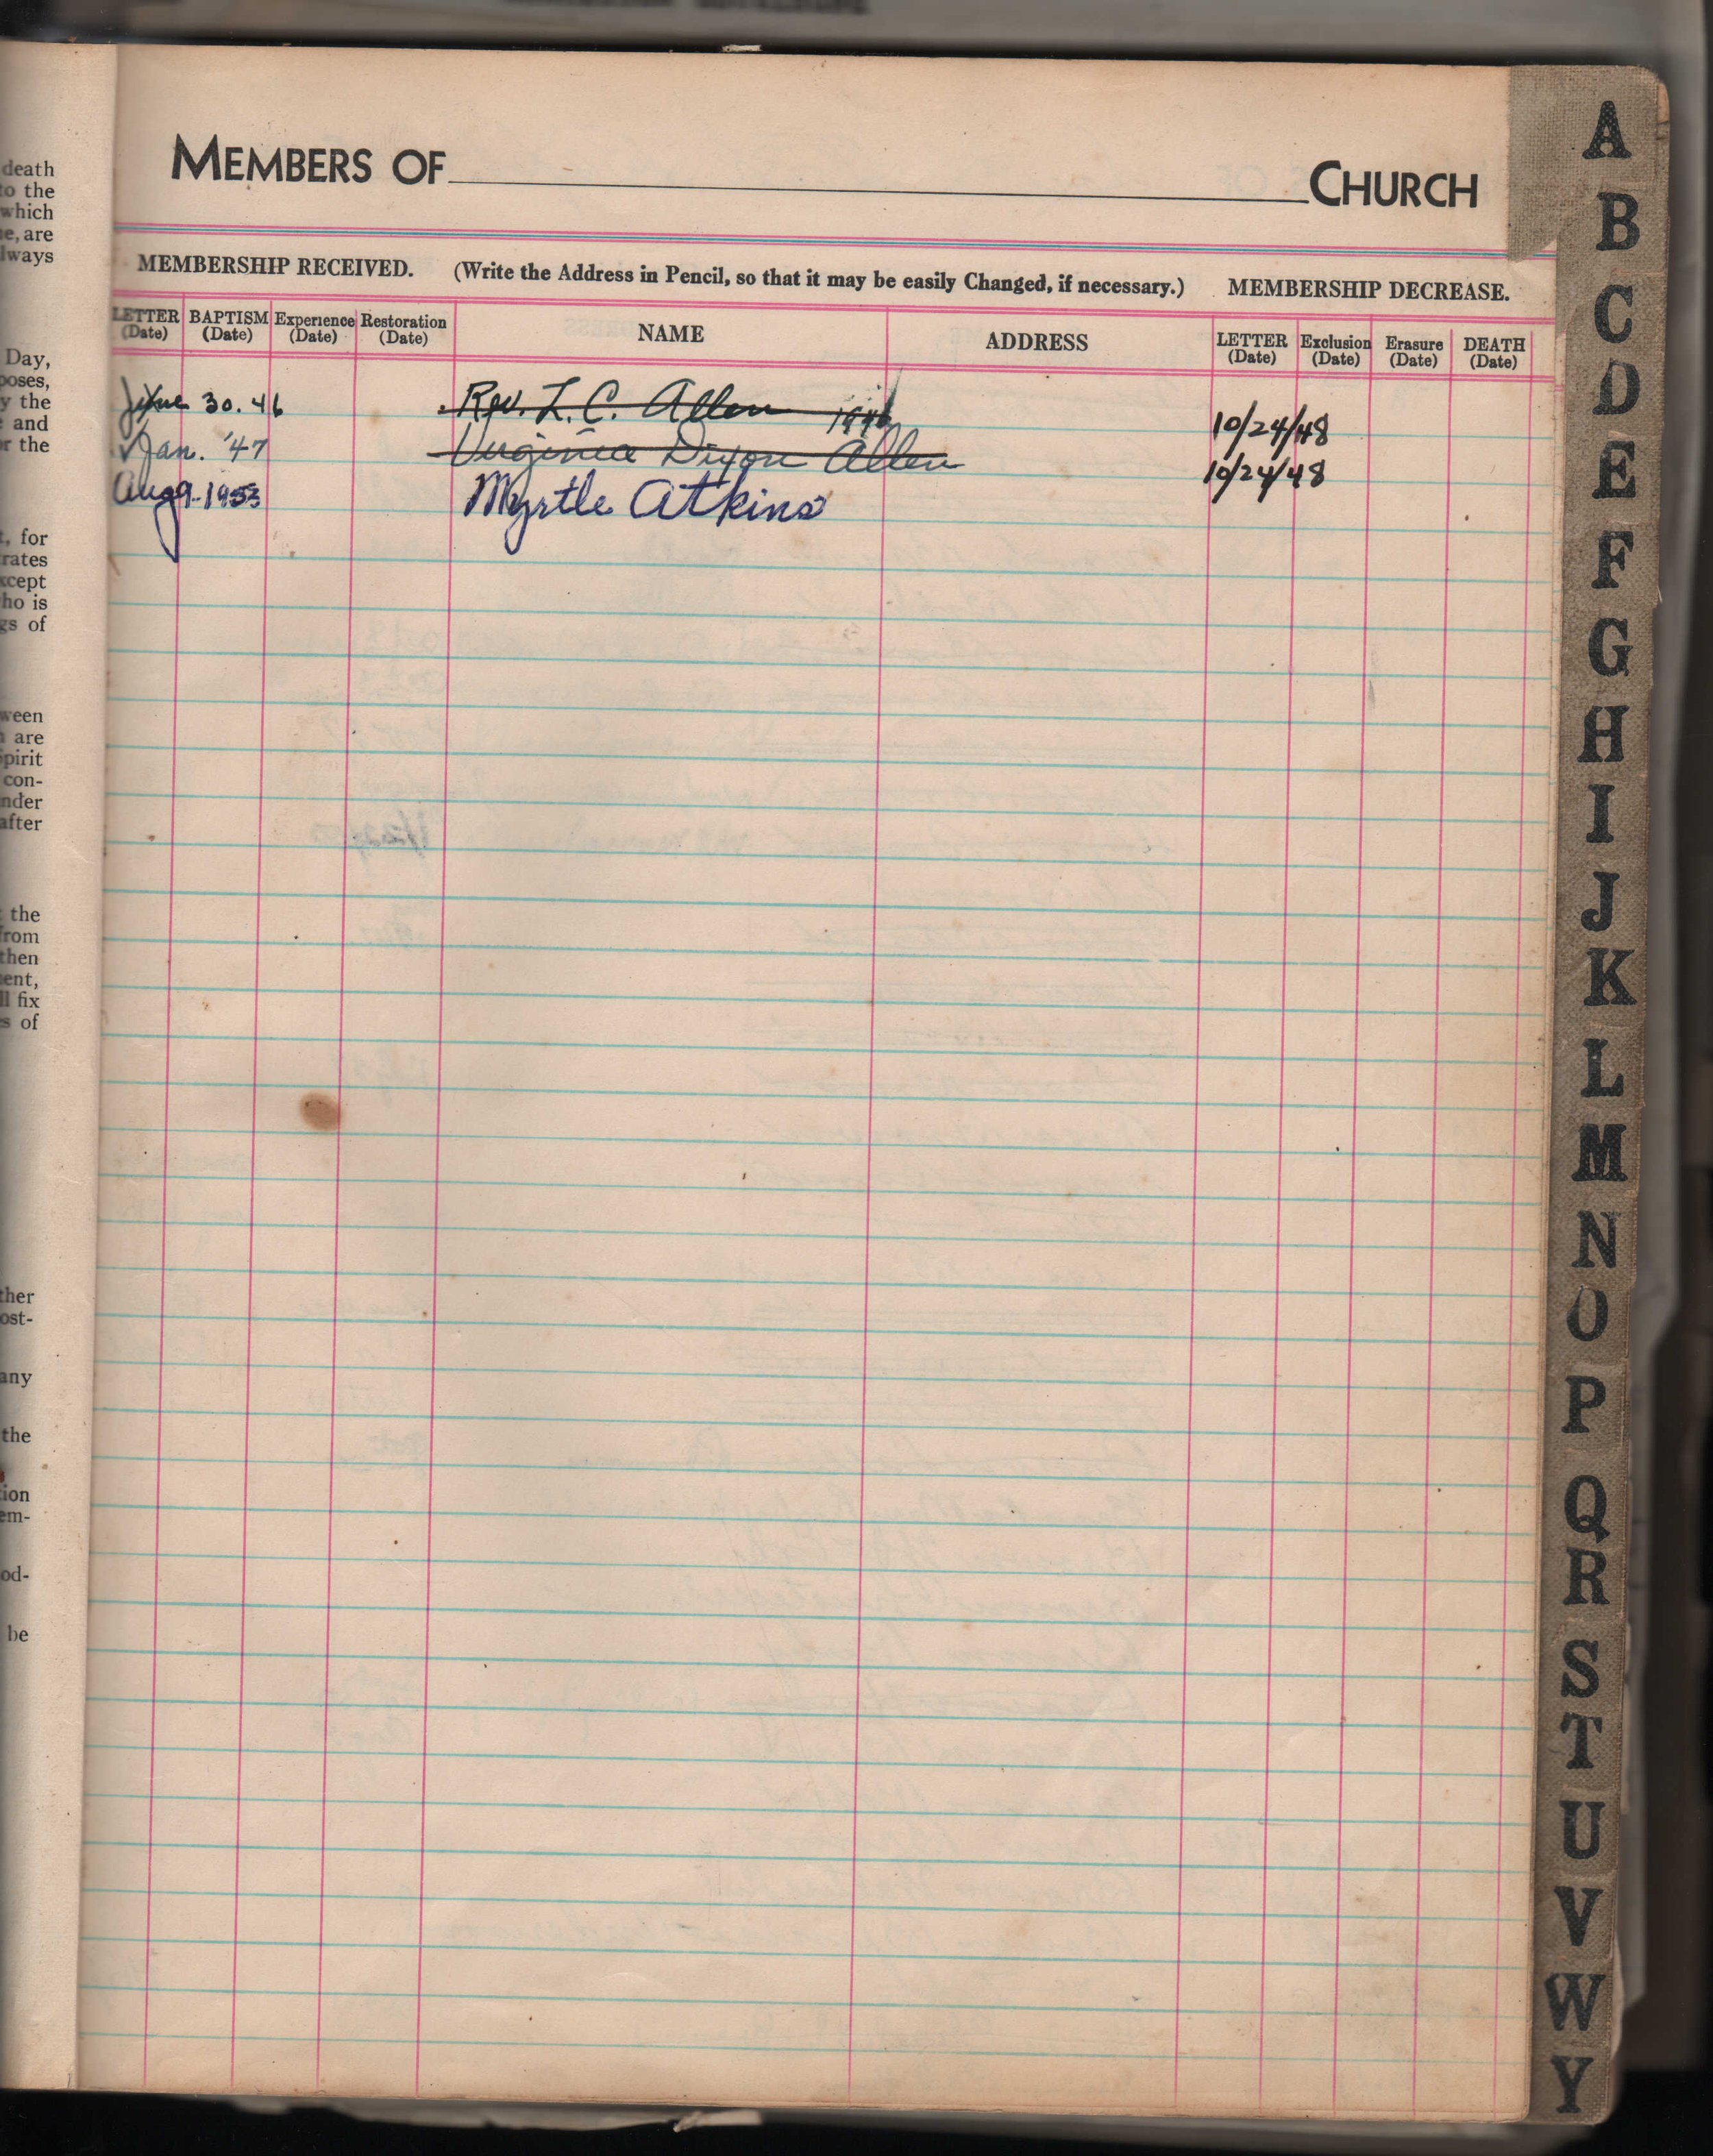 MEMBERS OF CHURCH
MEMBERSHIP RECEIVED. (Write the Address in Pencil, so that it may be easily Changed, if necessary.) MEMBERSHIP DECREASE.
LETTER (Date) BAPTISM (Date) Experience (Date) Restoration (Date) NAME ADDRESS LETTER (Date) Exclusion (Date) Erasure (Date) DEATH (Date)
June 30. 46 Rev. L. C. Allen 1946 10/24/48
Jan. '47 Virginia Dixon Allen 10/24/48
Aug 9-1953 Myrtle Atkins
A
B
C
D
E
F
G
H
I
J
K
L
M
N
O
P
Q
R
S
T
U
V
W
Y
death
to the
which
e, are
lways
Day,
poses,
y the
and
or the
t, for
rates
xcept
ho is
gs of
ween
are
pirit
con-
nder
after
the
from
then
ent,
ll fix
s of
ther
ost-
any
the
ion
em-
od-
be